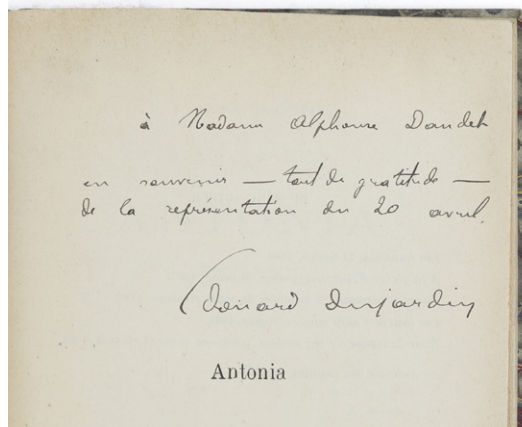 à Madame Alphonse Daudet
en souvenir — tant de gratitude —
de la représentation du 20 avril.
Edouard Dujardin
Antonia